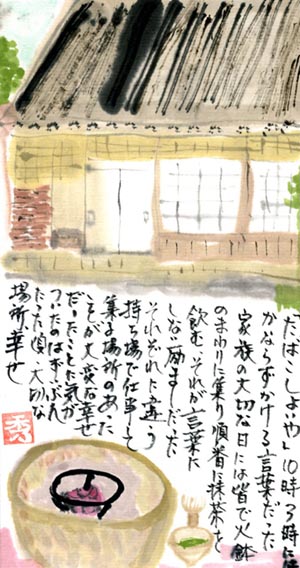 「たばこしよや」10時3時には
かならずかける言葉だった
家族の大切な日には皆で火鉢
のまわりに集り順番に抹茶を
飲む、それが言葉に
しない励ましだった
それぞれに違う
持ち場で仕事して
集る場所のあた
ことが大変な幸せ
だったことに気が
ついたのはずいぶん
たった頃、大切な
場所、幸せ
秀